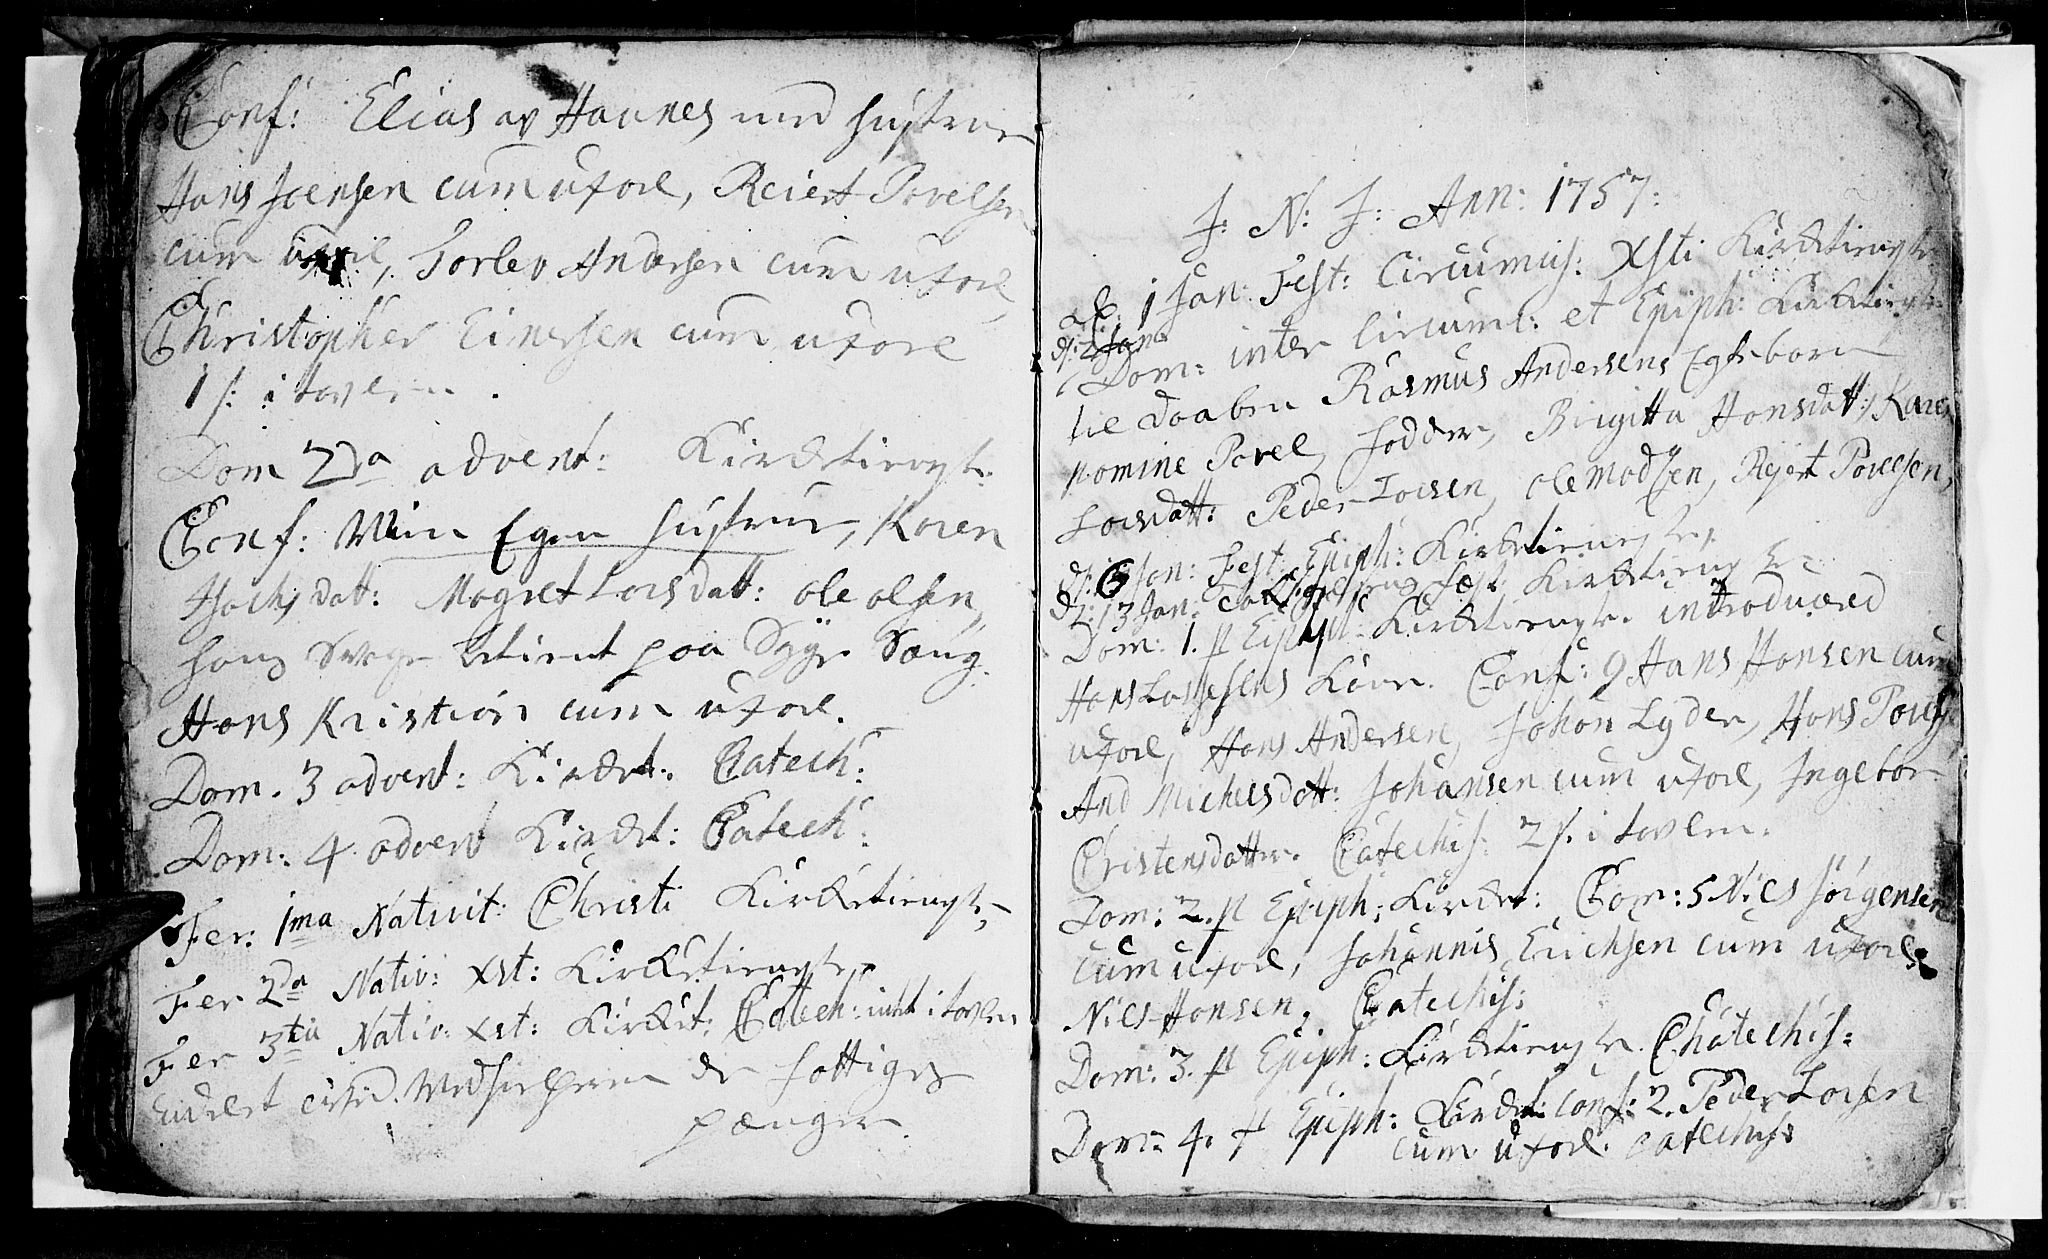 Conf: Elias og Hannes med Hustrue
Hans Joensen cum uxore, Reiert Povelsen
cum uxore, Torlev Andersen cum uxore
Christopher Einersen cum uxore
1 s: i tavlen.
Dom 2da advent: Kircketieneste.
Conf: Min Egen Hustrue, Karen
Isachsdatt: Magret Larsdatt: ole olsen,
hans betient paa Syge Sæng.
Hans Kristian cum uxore.
Dom. 3 advent: Kircket: Catech:
Dom: 4 advent Kircket: Catech:
Fer: 1ma Nativit: Christi Kircketieneste,
Fer 2da Nativ: Xst: Kircketieneste
Fer 3tia Nativ: Xst: Kircket: Catech: intet i tavlen
de fattiges
pænger.
J: N: J: Ann: 1757:
d: 1 Jan: Fest: Circumcis: Xsti Kircketieneste
d: 2 Jan:
Dom: inter Circumc: et Epiph: Kircketieneste
til Daaben Rasmus Andersens Egtebarn
nomine Povel, Fadder, Birgitta Hansdatt: Karen
Larsdatt: Peder Larsen, ole Madsen, Rejert Povelsen,
d: 6 Jan: Fest: Epiph: Kircketieneste,
d: 13 Jan: Fest: Kircketieneste
Dom: 1. p Epiph: Kircketieneste introduced
Hans Lassesens Kone. Conf: 9 Hans Hansen cum
uxore, Hans Andersen, Johan Lyder, Hans Povelsen
And Michelsdatt: Johansen cum uxore, Ingebor
Christensdatter. Catechis: 2 s. i tavlen.
Dom: 2. p Epiph: Kircket: Com: 5 Niels Jörgensen
cum uxore, Johannis Erichsen cum uxore,
Niels Hansen. Catechis:
Dom: 3. p Epiph: Kircketieneste. Chatechis:
Dom: 4. p Epiph: Kircket: Conf: 2. Peder Larsen
cum uxore. catechis